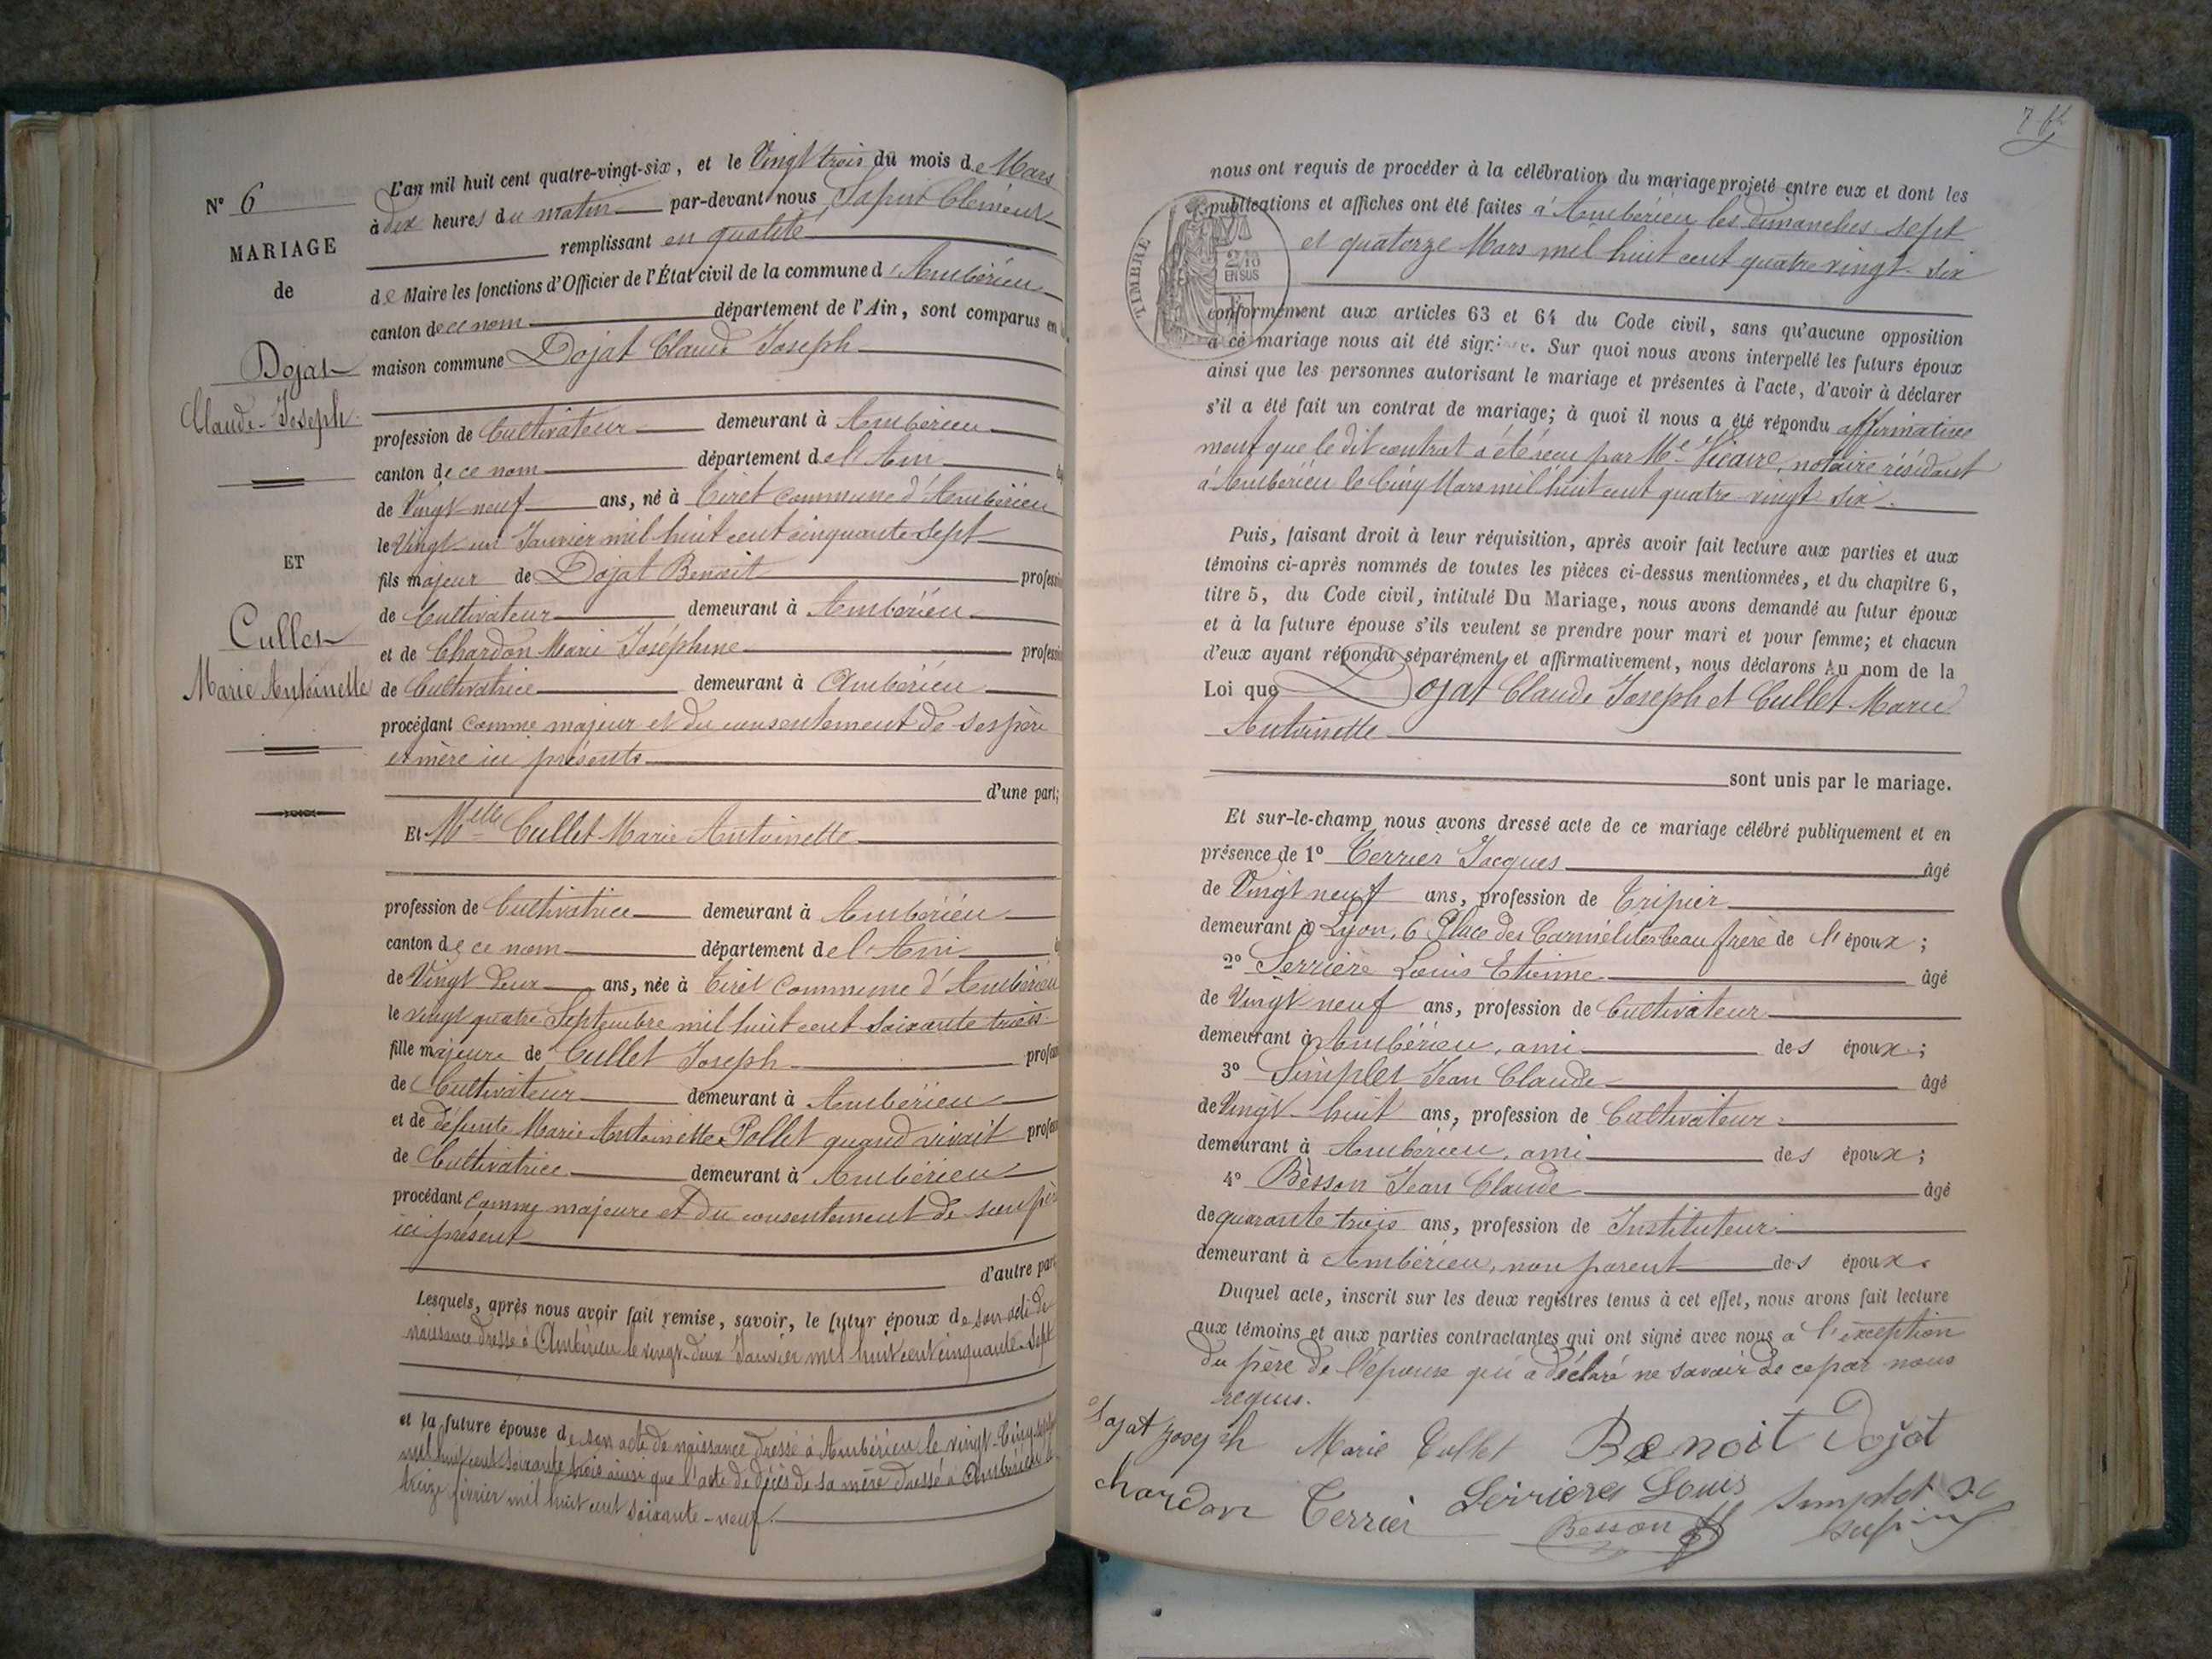 N° 6
MARIAGE
de
Dojat
Claude-Joseph
ET
Cullet
Marie Antoinette
L'an mil huit cent quatre-vingt-six, et le Vingt trois du mois de Mars
à dix heures du matin par-devant nous Sapin Clément
remplissant en qualité
de Maire les fonctions d'Officier de l'État civil de la commune d'Ambérieu
canton de ce nom département de l'Ain, sont comparus en
maison commune Dojat Claude Joseph
profession de Cultivateur demeurant à Ambérieu
canton de ce nom département de l'Ain
de Vingt neuf ans, né à Tiret Commune d'Ambérieu
le Vingt-un Janvier mil huit cent cinquante sept
fils majeur de Dojat Benoit profession
de Cultivateur demeurant à Ambérieu
et de Chardon Marie Joséphine profession
de Cultivatrice demeurant à Ambérieu
procédant comme majeur et du consentement de ses père
et mère ici présents
d'une part;
Et Melle Cullet Marie Antoinette
profession de Cultivatrice demeurant à Ambérieu
canton de ce nom département de l'Ain
de Vingt deux ans, née à Tiret Commune d'Ambérieu
le vingt quatre Septembre mil huit cent soixante trois
fille majeure de Cullet Joseph
de Cultivateur demeurant à Ambérieu
et de défunte Marie Antoinette Pollet quand vivait
de Cultivatrice demeurant à Ambérieu
procédant comme majeure et du consentement de son père
ici présent
d'autre part
Lesquels, après nous avoir fait remise, savoir, le futur époux de son acte de
naissance dressé à Ambérieu le vingt-deux Janvier mil huit cent cinquante-sept
et la future épouse de son acte de naissance dressé à Ambérieu le vingt-cinq
mil huit cent soixante trois ainsi que l'acte de décès de sa mère dressé à Ambérieu le
treize février mil huit cent soixante-neuf.
TIMBRE
EN SUS
nous ont requis de procéder à la célébration du mariage projeté entre eux et dont les
publications et affiches ont été faites à Ambérieu les dimanches sept
et quatorze Mars mil huit cent quatre vingt-six
conformément aux articles 63 et 64 du Code civil, sans qu'aucune opposition
à ce mariage nous ait été signifiée. Sur quoi nous avons interpellé les futurs époux
ainsi que les personnes autorisant le mariage et présentes à l'acte, d'avoir à déclarer
s'il a été fait un contrat de mariage; à quoi il nous a été répondu affirmative
ment que le dit contrat a été reçu par Me Vicaire, notaire résidant
à Ambérieu le Cinq Mars mil huit cent quatre vingt six.
Puis, faisant droit à leur réquisition, après avoir fait lecture aux parties et aux
témoins ci-après nommés de toutes les pièces ci-dessus mentionnées, et du chapitre 6,
titre 5, du Code civil, intitulé Du Mariage, nous avons demandé au futur époux
et à la future épouse s'ils veulent se prendre pour mari et pour femme; et chacun
d'eux ayant répondu séparément et affirmativement, nous déclarons Au nom de la
Loi que Dojat Claude Joseph et Cullet Marie
Antoinette
sont unis par le mariage.
Et sur-le-champ nous avons dressé acte de ce mariage célébré publiquement et en
présence de 1° Terrier Jacques âgé
de Vingt neuf ans, profession de Tripier
demeurant à Lyon, 6 Place des Carmélites beau frère de l'époux;
2° Serrière Louis Etienne âgé
de Vingt neuf ans, profession de Cultivateur
demeurant à Ambérieu, ami des époux;
3° Simplet Jean Claude âgé
de Vingt-huit ans, profession de Cultivateur
demeurant à Ambérieu, ami des époux;
4° Besson Jean Claude âgé
de quarante trois ans, profession de Instituteur
demeurant à Ambérieu, non parent des époux.
Duquel acte, inscrit sur les deux registres tenus à cet effet, nous avons fait lecture
aux témoins et aux parties contractantes qui ont signé avec nous à l'exception
du père de l'épouse qui a déclaré ne savoir de ce par nous
requis.
Dojat Joseph Marie Cullet Benoit Dojat
Chardon Terrier Serrières Louis Simplet JC
Besson Sapin